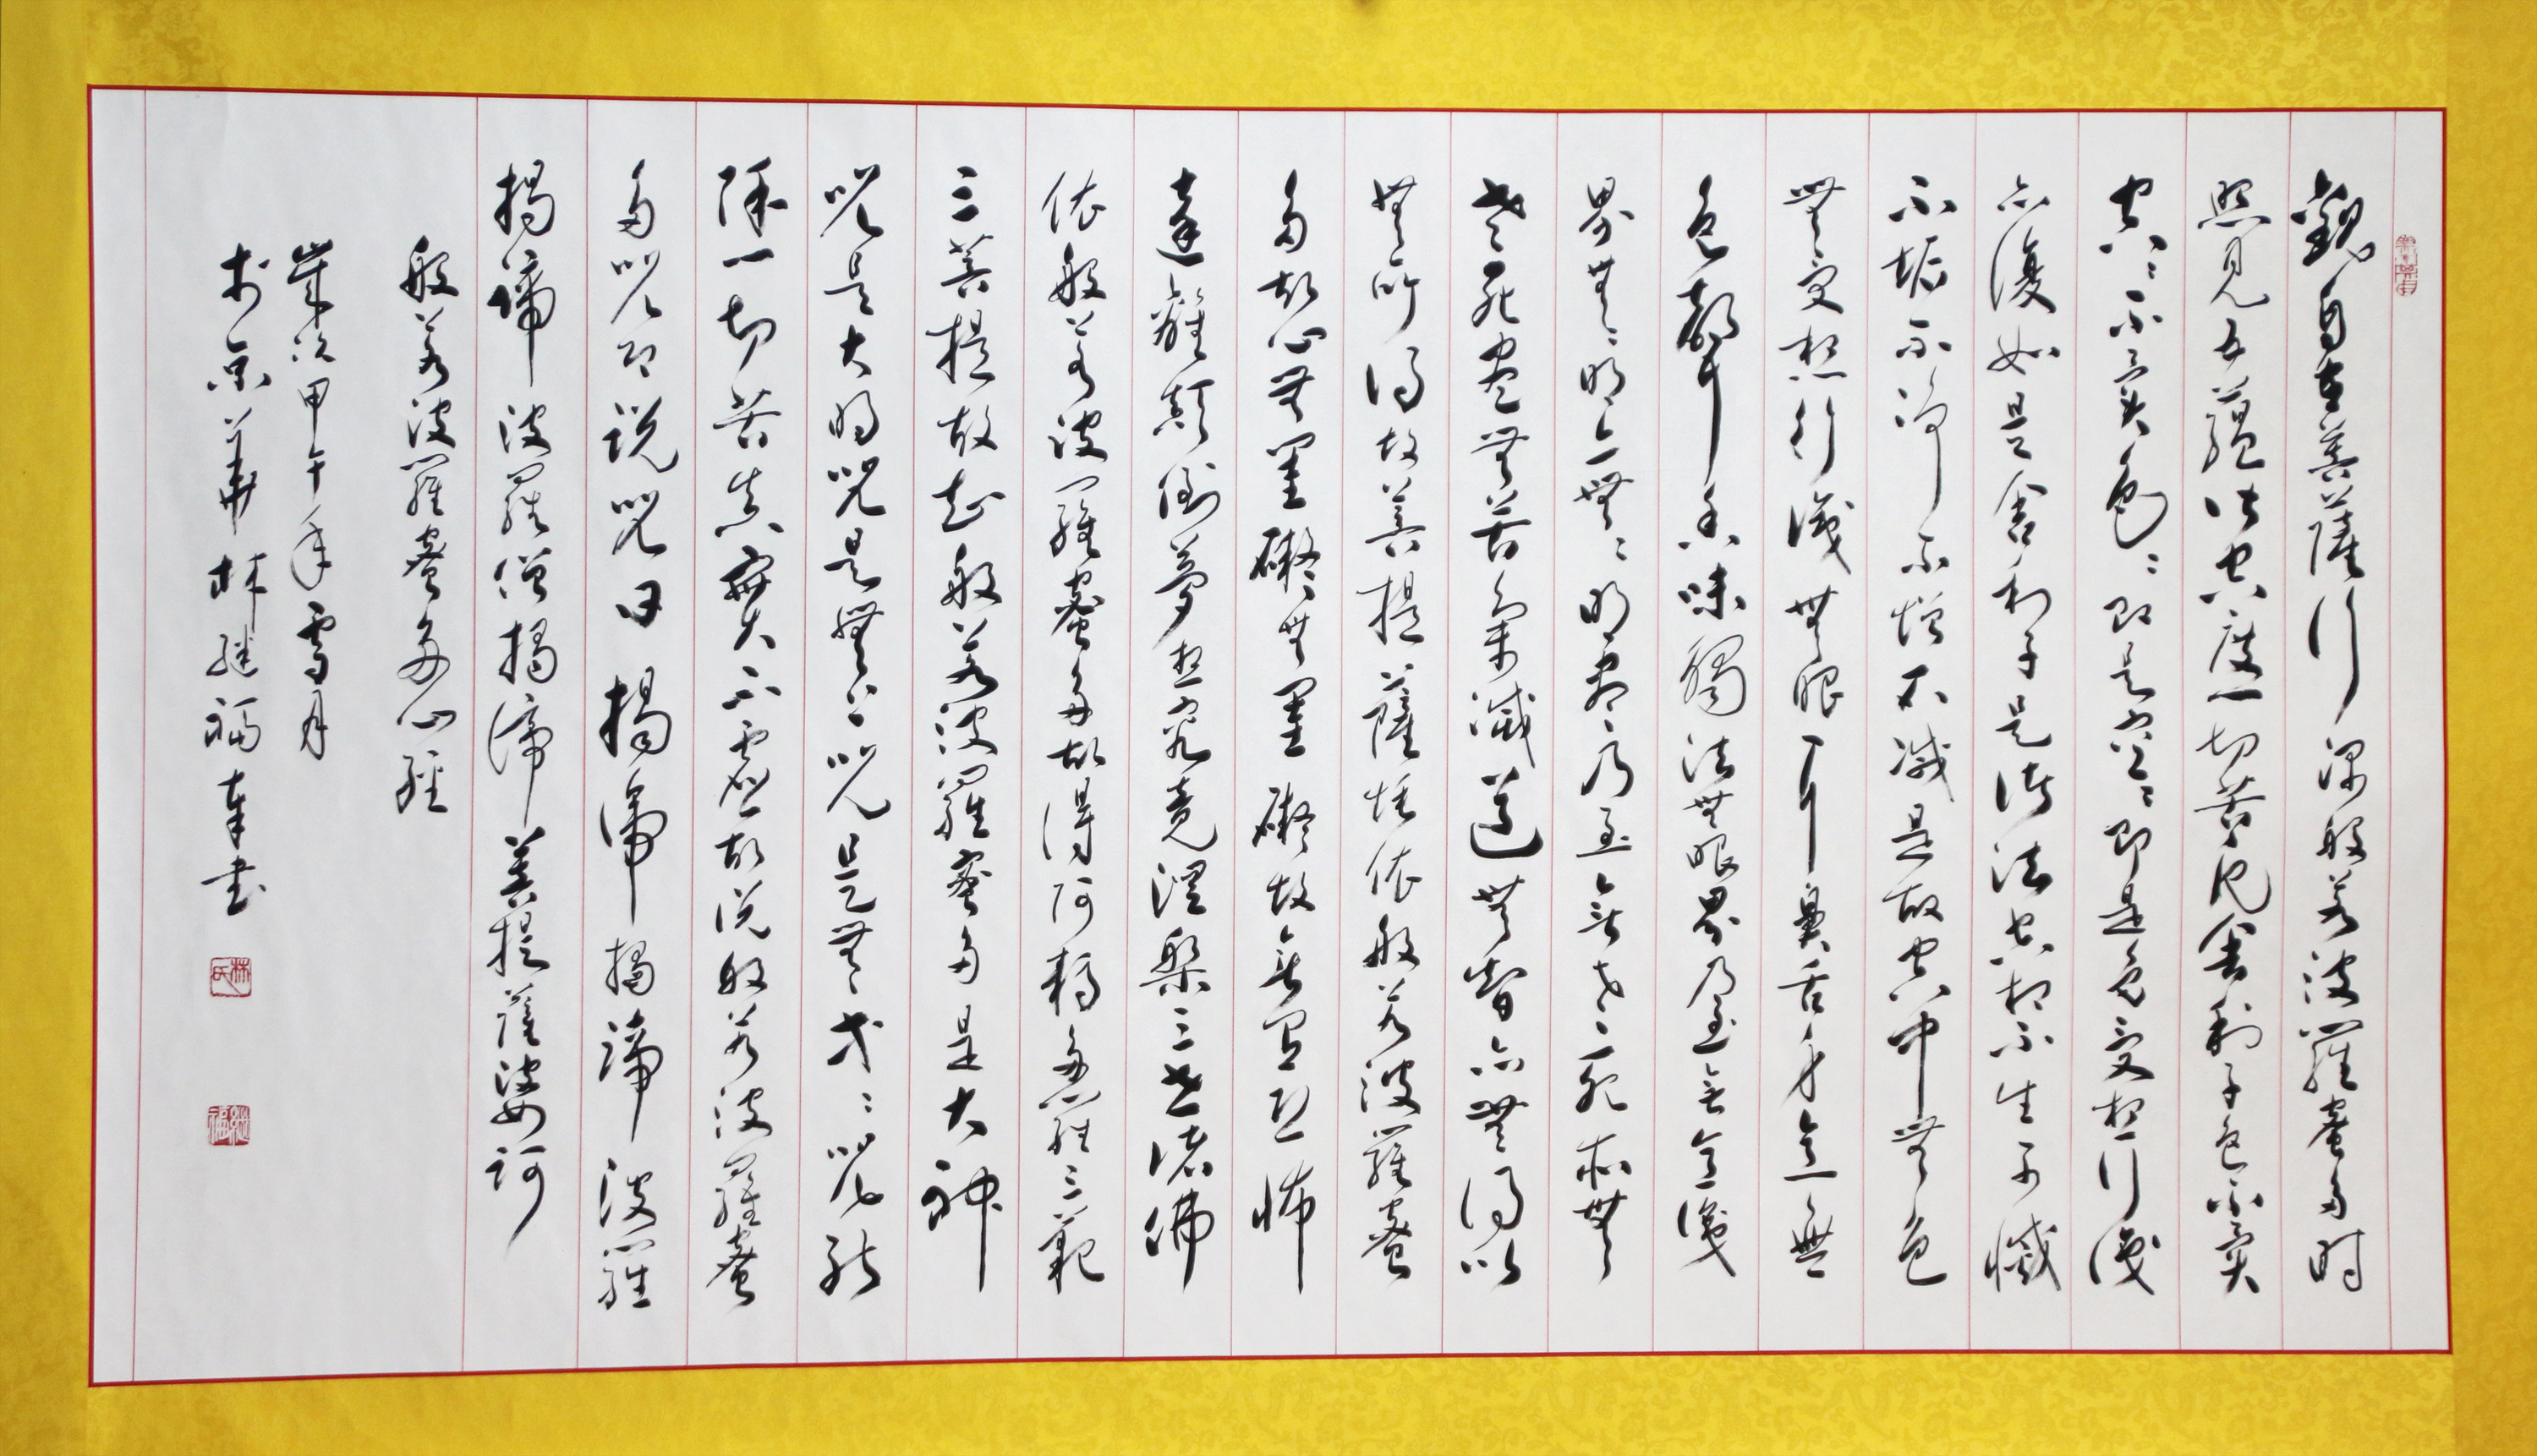 觀自在菩薩行深般若波羅蜜多時
照見五蘊皆空度一切苦厄舍利子色不異
空〻不異色〻即是空〻即是色受想行識
亦復如是舍利子是諸法空相不生不滅
不垢不淨不增不減是故空中無色
無受想行識無眼耳鼻舌身意無
色聲香味觸法無眼界乃至無意識
界無〻明亦無〻明盡乃至無老死亦無
老死盡無苦集滅道無智亦無得以
無所得故菩提薩埵依般若波羅蜜
多故心無罣礙無罣礙故無有恐怖
遠離顛倒夢想究竟涅槃三世諸佛
依般若波羅蜜多故得阿耨多羅三藐
三菩提故知般若波羅蜜多是大神
咒是大明咒是無上咒是無等〻咒能
除一切苦真實不虛故說般若波羅蜜
多咒即說咒曰揭諦揭諦波羅
揭諦波羅僧揭諦菩提薩婆訶
般若波羅蜜多心經
歲次甲午年雪月
於京華林繼福奉書
林氏
繼福